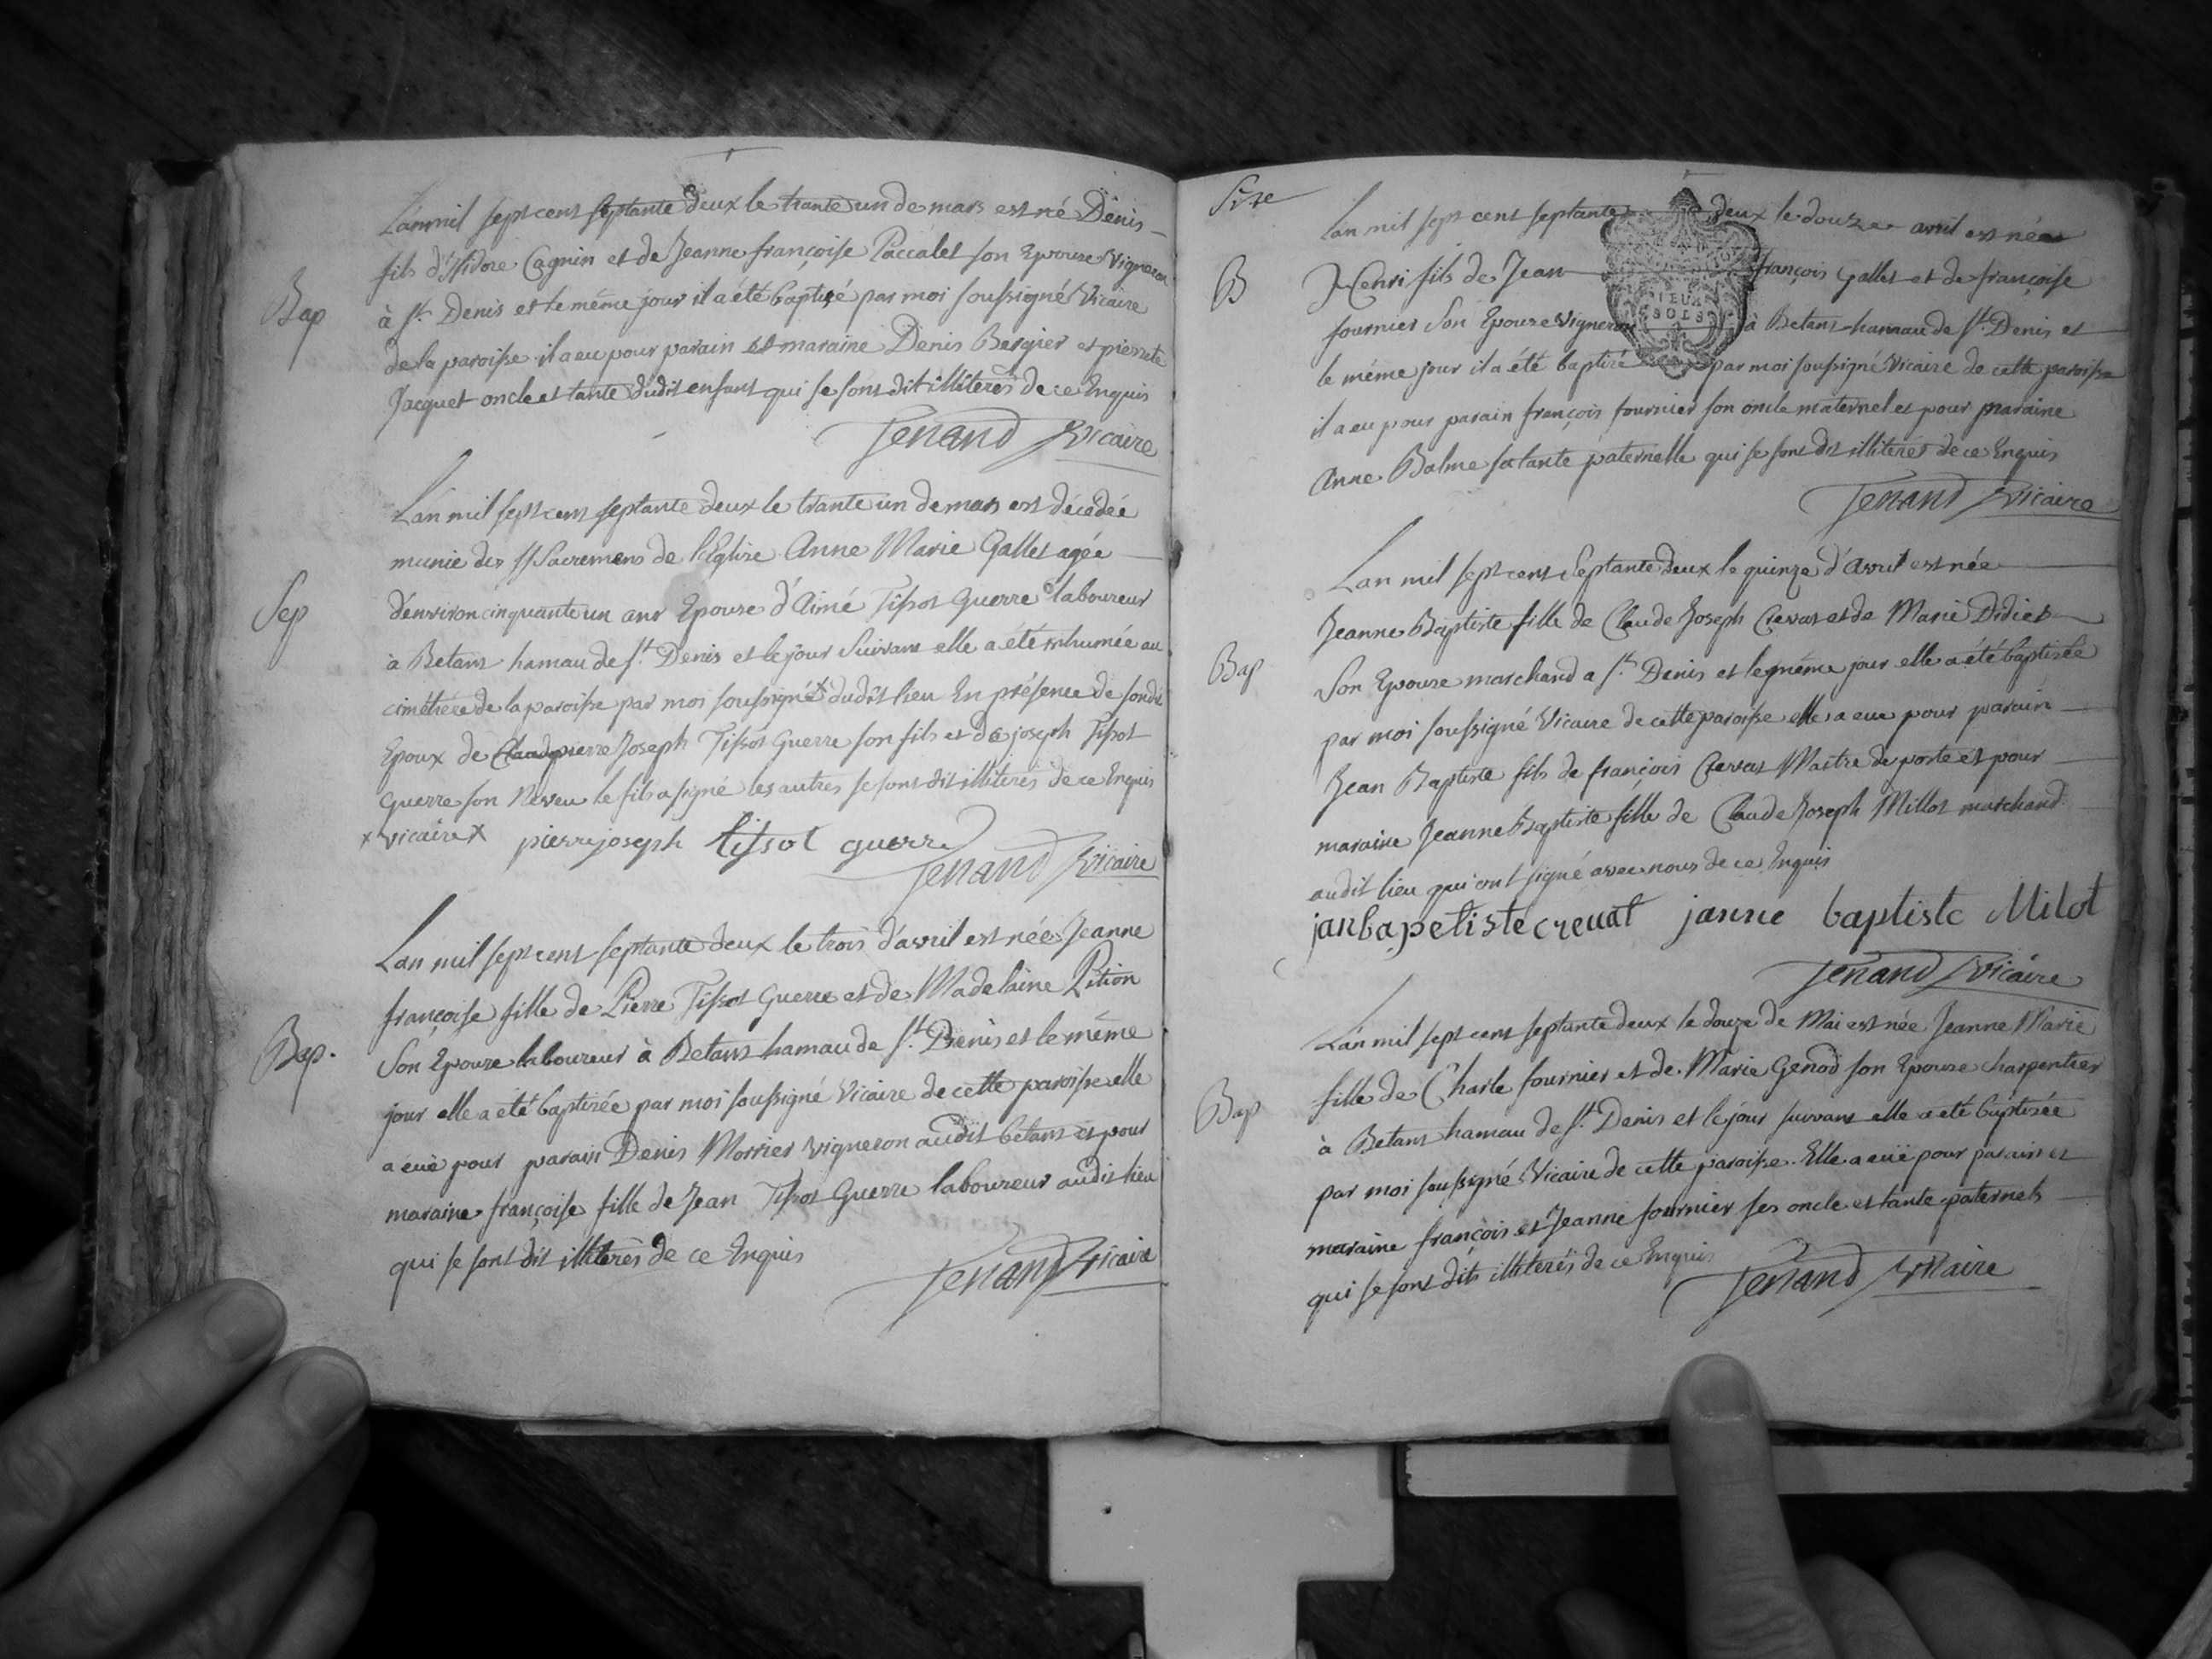 L'an mil sept cent septante deux le trante un de mars est né Denis
fils d'Isidore Cagnin et de Jeanne françoise Paccalet son Epouze Vigneron
Bap
à St. Denis et le même jour il a été baptizé par moi soussigné Vicaire
de la paroisse il a eu pour parain et maraine Denis Bergier et pierrete
Jacquet oncle et tante dudit enfant qui se sont dit illiterés de ce Enquis
Tenand Vicaire
L'an mil sept cent septante deux le trante un de mars est décédée
munie des SSacremens de l'Eglise Anne Marie Gallet agée
Sep
d'environ cinquante un ans Epouze d'Aimé Tissot Guerre laboureur
à Betans hamau de St. Denis et le jour suivant elle a été inhumée au
cimétiére de la paroisse par moi soussigné x dudit lieu En présence de sondit
Epoux de Claude pierre Joseph Tissot Guerre son fils et de joseph Tissot
Guerre son Neveu le fils a signé les autres se sont dit illiterés de ce Enquis
x vicaire x pierre joseph tissot guerre
Tenand Vicaire
L'an mil sept cent septante deux le trois d'avril est née Jeanne
françoise fille de Pierre Tissot Guerre et de Madelaine Pition
Bap.
Son Epouze laboureur à Betans hamau de St. Denis et le même
jour elle a été baptizée par moi soussigné Vicaire de cette paroisse elle
a eüe pour parain Denis Morrier vigneron audit betans et pour
maraine françoise fille de Jean Tissot Guerre laboureur audit lieu
qui se sont dit illiterés de ce Enquis
Tenand Vicaire
L'an mil sept cent septante deux le douze avril est né
B
Henri fils de Jean françois Gallet et de françoise
DEUX
SOLS
fournier Son Epouze Vigneron à Betans hamau de St. Denis et
le même jour il a été baptizé par moi soussigné Vicaire de cette paroisse
il a eu pour parain françois fournier son oncle maternel et pour maraine
Anne Balme sa tante paternelle qui se sont dit illiterés de ce Enquis
Tenand Vicaire
L'an mil sept cent Septante deux le quinze d'avril est née
Jeanne Baptiste fille de Claude Joseph Crevat et de Marie Didier
Bap
Son Epouze marchand a St. Denis et le même jour elle a été baptizée
par moi soussigné Vicaire de cette paroisse elle a eue pour parain
Jean Baptiste fils de françois Crevat Maitre de poste et pour
maraine Jeanne Baptiste fille de Claude Joseph Millot marchand
audit lieu qui ont signé avec nous de ce Enquis
janbapetiste creuat janne baptiste Milot
Tenand Vicaire
L'an mil sept cent septante deux le douze de Mai est née Jeanne Marie
fille de Charle fournier et de Marie Genod son Epouze charpentier
Bap
à Betans hamau de St. Denis et le jour suivant elle a été baptizée
par moi soussigné Vicaire de cette paroisse. Elle a eüe pour parain et
maraine françois et Jeanne fournier ses oncle et tante paternels
qui se sont dits illiterés de ce Enquis
Tenand Vicaire